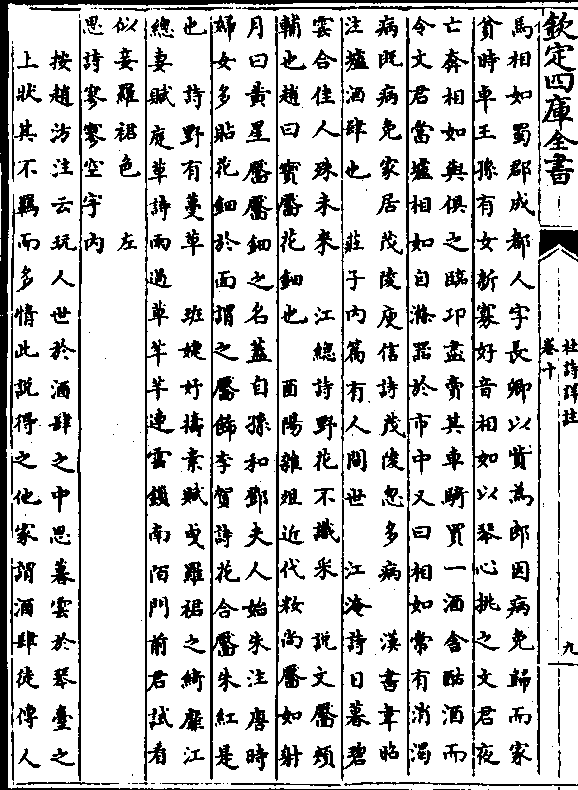 欽定四庫全書
杜詩詳註
卷十
九
馬相如蜀郡成都人字長卿以貲為郎因病免歸而家
貧時卓王孫有女新寡好音相如以琴心挑之文君夜
亡奔相如與俱之臨卭盡賣其車騎買一酒舍酤酒而
令文君當壚相如自滌器於市中又曰相如常有消渴
病既病免家居茂陵庾信詩茂陵忽多病　漢書韋昭
注壚酒肆也　莊子内篇有人間世　江淹詩日暮碧
雲合佳人殊未來　江總詩野花不識采　說文靨頰
輔也趙曰寳靨花鈿也　酉陽雜俎近代粧尚靨如射
月曰黄星靨靨鈿之名蓋自孫和鄧夫人始朱注唐時
婦女多貼花鈿於面謂之靨飾李賀詩花合靨朱紅是
也　詩野有蔓草　班婕妤擣素賦曳羅裙之綺靡江
總妻賦庭草詩雨過草芊芊連雲鎖南陌門前君試看
似妾羅裙色　左
思詩寥寥空宇内
按趙汸注云玩人世於酒肆之中思暮雲於琴臺之
上狀其不羈而多情此説得之他家謂酒肆徒傳人